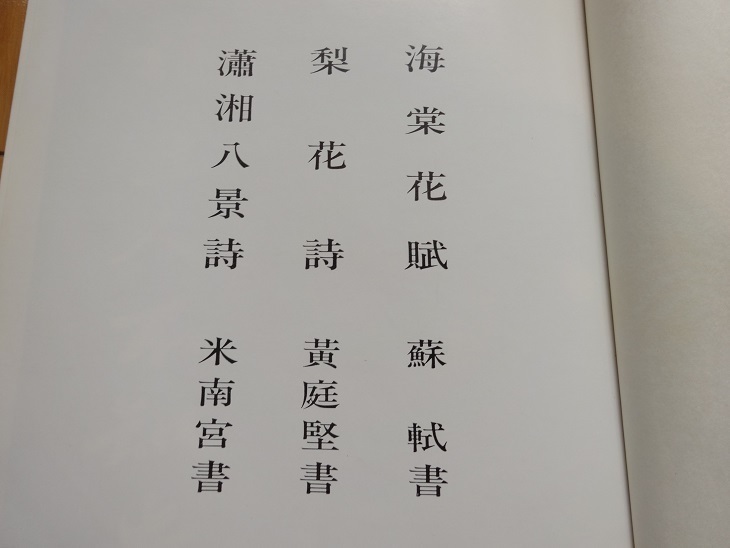 海棠花賦 蘇軾書
梨花詩 黃庭堅書
瀟湘八景詩 米南宮書